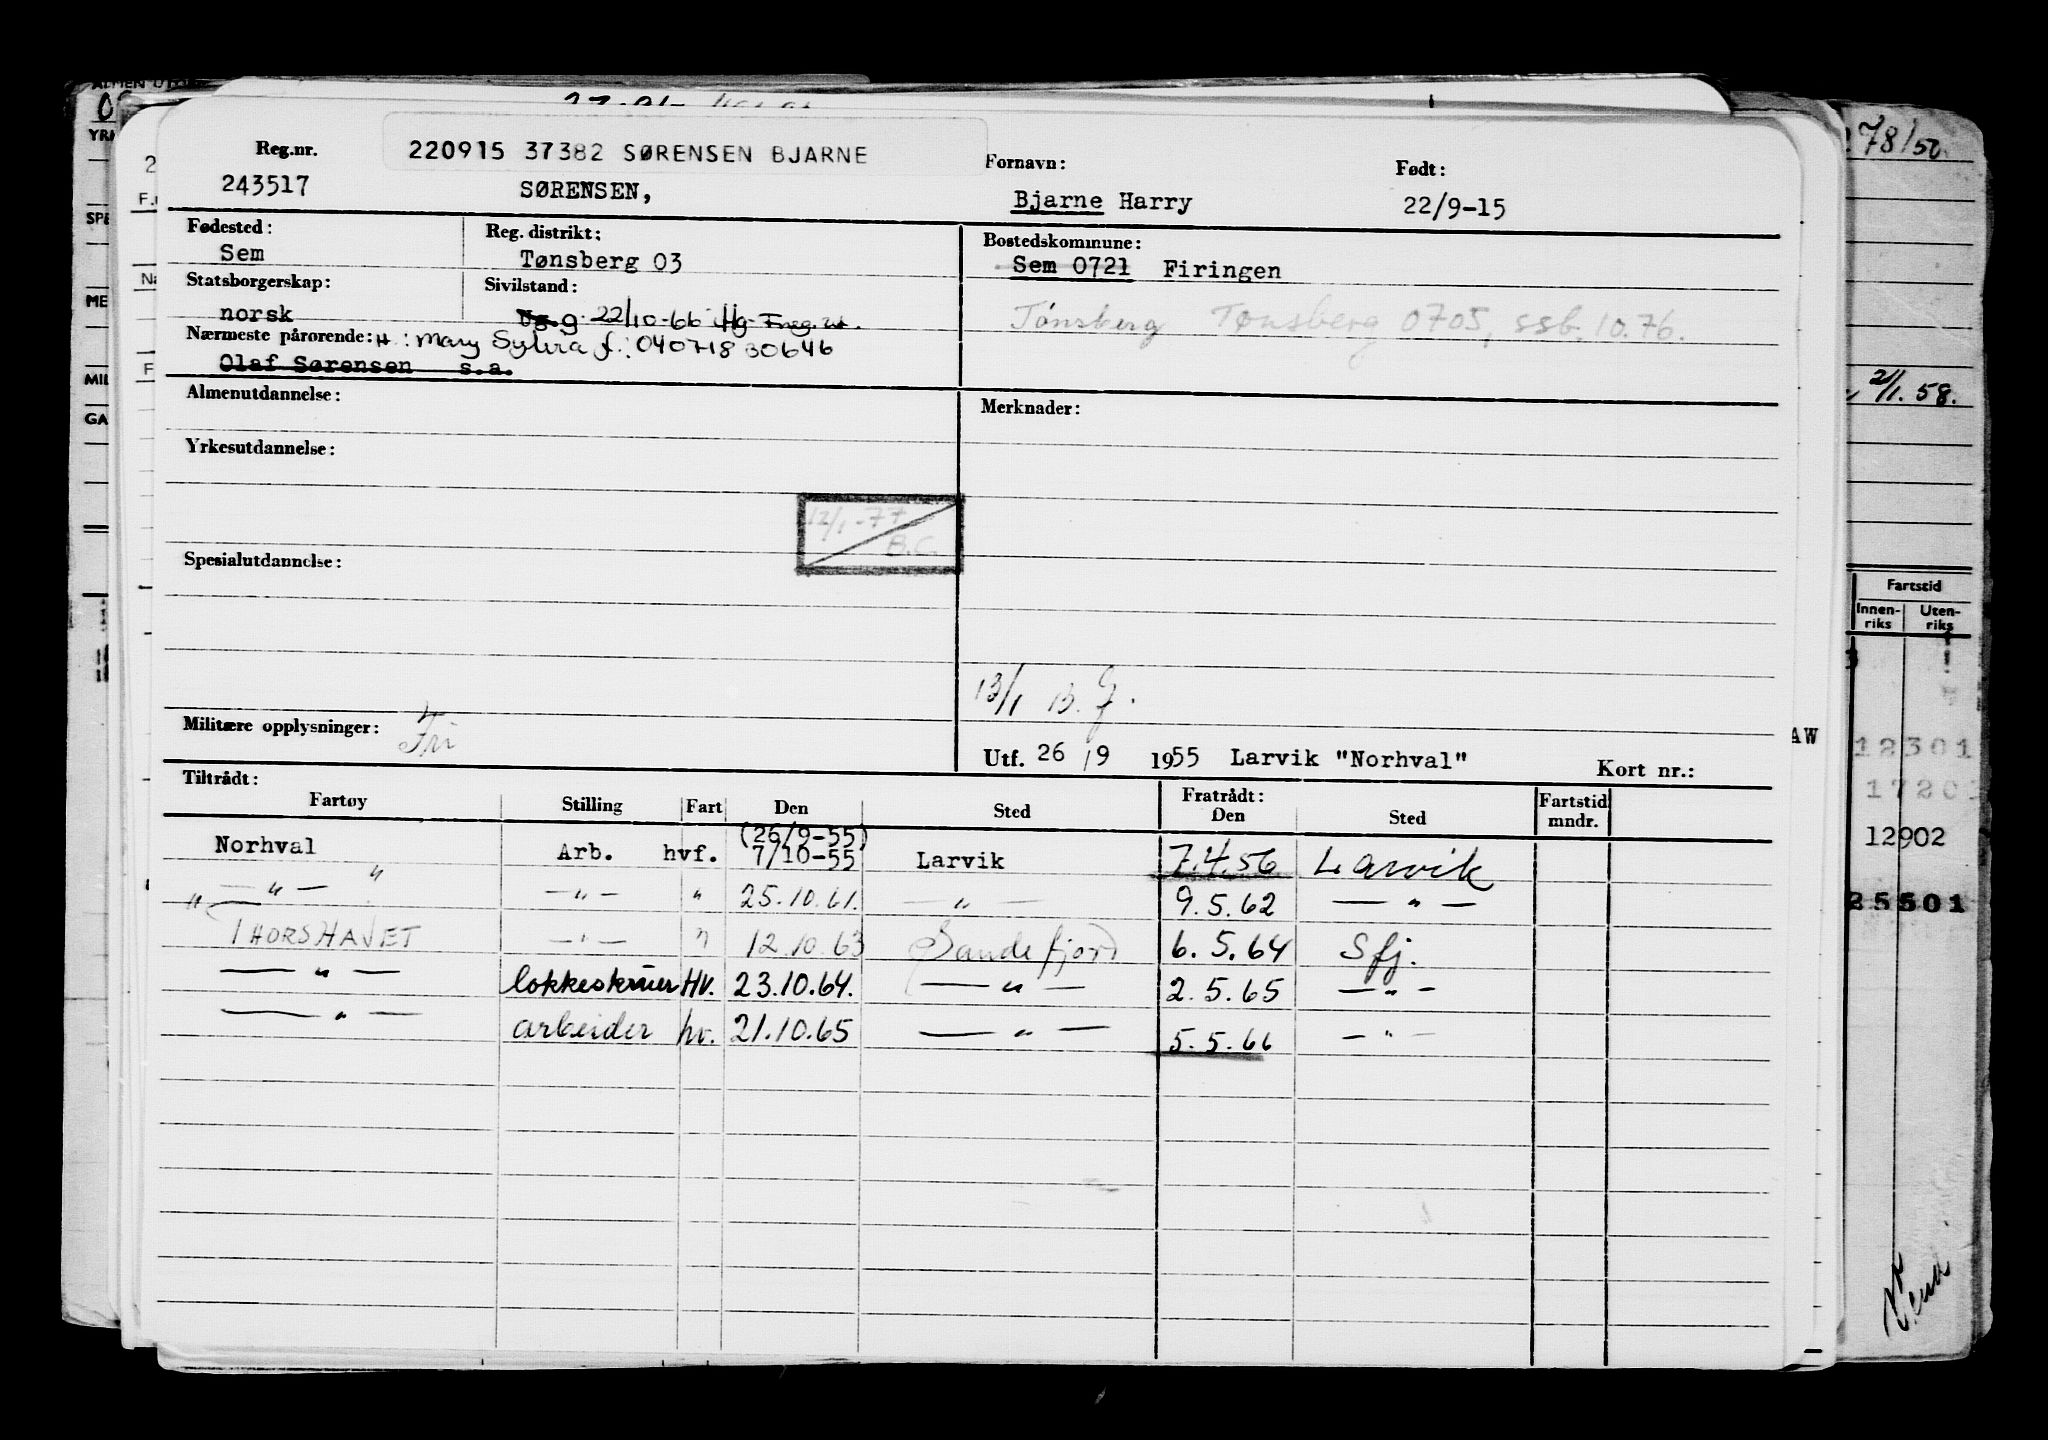 Reg.nr. 220915 37382 SØRENSEN BJARNE Fornavn: Født:
243517 SØRENSEN, Bjarne Harry 22/9-15
Fødested: Reg. distrikt: Bostedskommune:
Sem Tønsberg 03 Sem 0721 Firingen
Statsborgerskap: Sivilstand: Tønsberg Tønsberg 0705, ssb. 10.76.
norsk Ug. g. 22/10-66
Nærmeste pårørende: H.: Mary Sylvia f.: 040718 30646
Olaf Sørensen s.a.
Almenutdannelse: Merknader:
Yrkesutdannelse:
12/1-77
B.C.
Spesialutdannelse:
13/1 B.G.
Militære opplysninger: Fri
Utf. 26/9 1955 Larvik "Norhval" Kort nr.:
Tiltrådt: Fratrådt:
Fartøy Stilling Fart Den Sted Den Sted Fartstid mndr.
(26/9-55)
Norhval Arb. hvf. 7/10-55 Larvik 7.4.56 Larvik
— " — " — " — " 25.10.61. — " — 9.5.62 — " —
THORSHAVET — " — " 12.10.63 Sandefjord 6.5.64 Sfj.
— " — lokkeskruer Hv. 23.10.64. — " — 2.5.65 — " —
— " — arbeider hv. 21.10.65 — " — 5.5.66 — " —
78/50.
2/1.58.
Fartstid
Innen-riks Uten-riks
AW
12301
1720
12902
25501
YRK
SPE
ME
MIL
GA